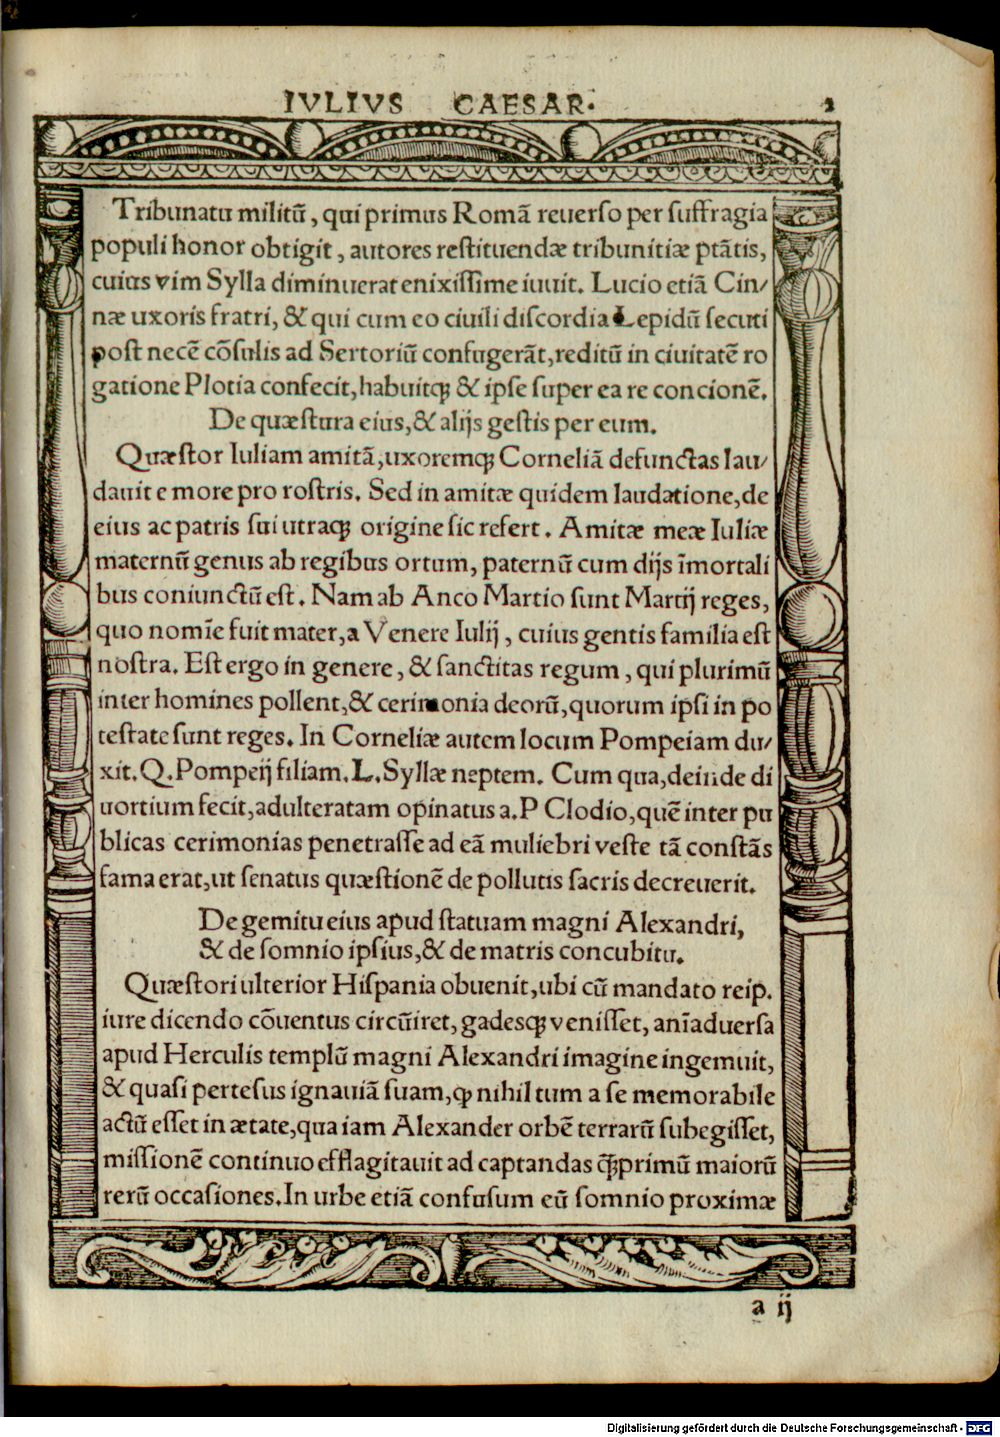 IVLIVS CAESAR.
2
Tribunatu militū, qui primus Romā reuerso per suffragia
populi honor obtigit, autores restituendæ tribunitiæ ptātis,
cuius vim Sylla diminuerat enixissime iuuit. Lucio etiā Cin/
næ uxoris fratri, & qui cum eo ciuili discordia Lepidū secuti
post necē cōsulis ad Sertoriū confugerāt, reditū in ciuitatē ro
gatione Plotia confecit, habuitqꝫ & ipse super ea re concionē.
De quæstura eius, & alijs gestis per eum.
Quæstor Iuliam amitā, uxoremqꝫ Corneliā defunctas lau/
dauit e more pro rostris. Sed in amitæ quidem laudatione, de
eius ac patris sui utraqꝫ origine sic refert. Amitæ meæ Iuliæ
maternū genus ab regibus ortum, paternū cum dijs īmortali
bus coniunctū est. Nam ab Anco Martio sunt Martij reges,
quo nomīe fuit mater, a Venere Iulij, cuius gentis familia est
nostra. Est ergo in genere, & sanctitas regum, qui plurimū
inter homines pollent, & cerimonia deorū, quorum ipsi in po
testate sunt reges. In Corneliæ autem locum Pompeiam du/
xit. Q. Pompeij filiam. L. Syllæ neptem. Cum qua, deinde di
uortium fecit, adulteratam opinatus a. P Clodio, quē inter pu
blicas cerimonias penetrasse ad eā muliebri veste tā constās
fama erat, ut senatus quæstionē de pollutis sacris decreuerit.
De gemitu eius apud statuam magni Alexandri,
& de somnio ipsius, & de matris concubitu.
Quæstori ulterior Hispania obuenit, ubi cū mandato reip.
iure dicendo cōuentus circūiret, gadesqꝫ venisset, anīaduersa
apud Herculis templū magni Alexandri imagine ingemuit,
& quasi pertesus ignauiā suam, ꝙ nihil tum a se memorabile
actū esset in ætate, qua iam Alexander orbē terrarū subegisset,
missionē continuo efflagitauit ad captandas q̄ꝫprimū maiorū
rerū occasiones. In urbe etiā confusum eū somnio proximæ
a ij
Digitalisierung gefördert durch die Deutsche Forschungsgemeinschaft - DFG